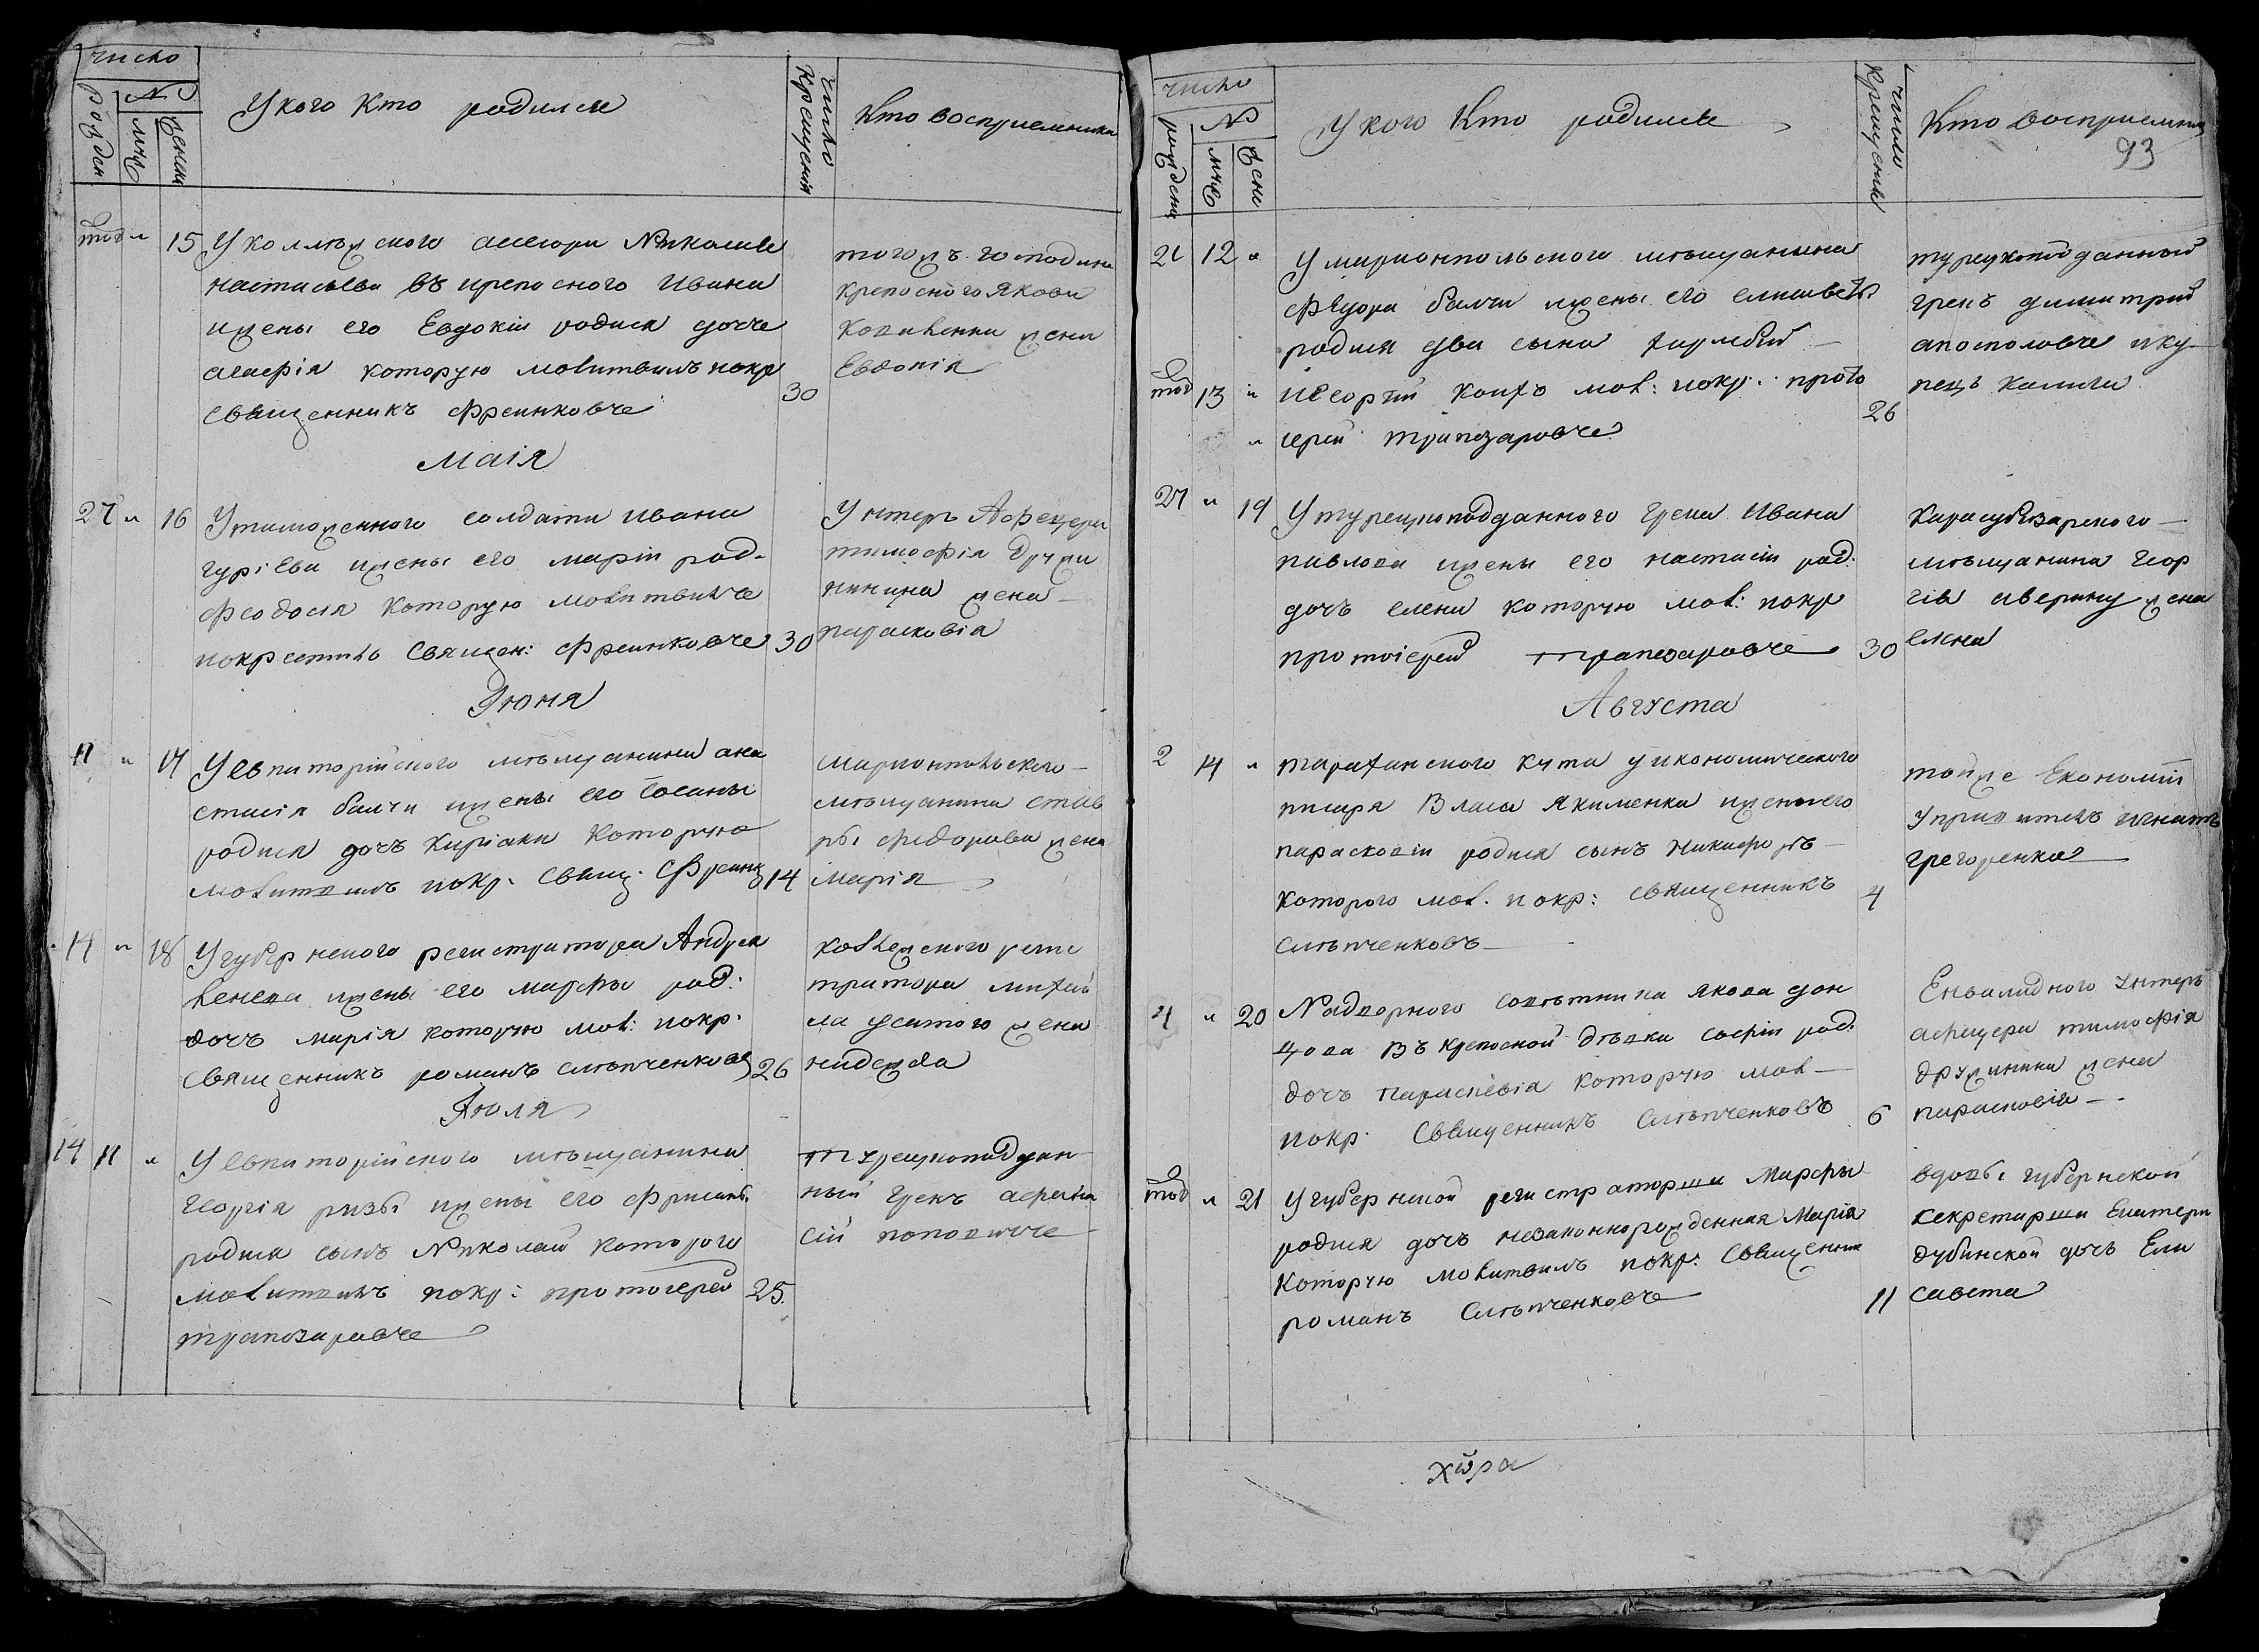 число
№
рожден
муж
женск
У кого кто родился
число крещения
Кто восприемники
тогож 15 У коллежского асесора Николая
настасьева въ крепосного Ивана
жены его Евдокіи родися дочъ
агафія которую молитвилъ покр
священникъ Френковъ 30
тогожъ господина
крепосного Якова
жена
Евдокія
Маія
27 16 У таможенного солдата Ивана
гуріева жены его маріи род.
феодосія которую молитвилъ
покрестилъ Священ: Френковъ 30
Унтеръ Афецера
тимофія дружи
нинина жена
парасковіа
Іюня
11 17 У евпаторійского мѣщанина ана
стасія балчи жены его
родися дочъ Киріаки которую
молитвилъ покр. свящ. Френк 14
мариопольского
мѣщанина став
ры федорова жена
марія
14 18 У губернского регистратора Андрея
жены его марфы род:
дочъ марія которую мол: покр.
священникъ романъ слѣпченковъ 26
колежского регис
тратора михай
ла усатого жена
надежда
Іюля
14 11 У евпаторійского мѣщанина
георгія ризы жены его
родися сынъ Николай которого
молитвилъ покр: протоіерей 25.
трапезаровъ
турецкоподдан
ный грекъ афана
сій поповичъ
число
№
рождения
муж
жен
У кого Кто родился
число крещения
Кто восприемник
93
21 12 У мариопольского мѣщанина
Фѣдора балчи жены его елисаветы
родися два сына харлабий
тогож 13 и Георгий коихъ мол: покр: прото
иерей трапезаровъ 26
турецкоподданный
грекъ димитрий
апостоловъ и ку
пецъ
27 19 У турецкоподданного грека Ивана
павлова жены его настасіи род:
дочъ елена которую мол: покр
протоіерей трапезаровъ 30
Карасубазарского
мѣщанина геор
гія аверину жена
елена
Августа
2 14 тараханского кута у икономического
писаря Власа Якименка жены его
парасковіи родися сынъ Никифоръ
которого мол. покр: священникъ 4
слѣпченковъ
тойже Економіи
управитель игнатъ
грегоренко
4 20 Надворного советника якова дон
цова въ крепосной дѣвки софіи род:
дочъ параскевіа которую мол
покр. Священникъ Слѣпченковъ 6
Енвалидного унтеръ
афицера тимофія
дружинина жена
парасковія
тогож 21 У губернской регистраторши Марфы
родися дочъ незаконнорожденная Марія
которую молитвилъ покр: Священник
романъ Слѣпченковъ 11
вдовы губернской
секретарши Екатерин
дубинской дочъ Ели
савета